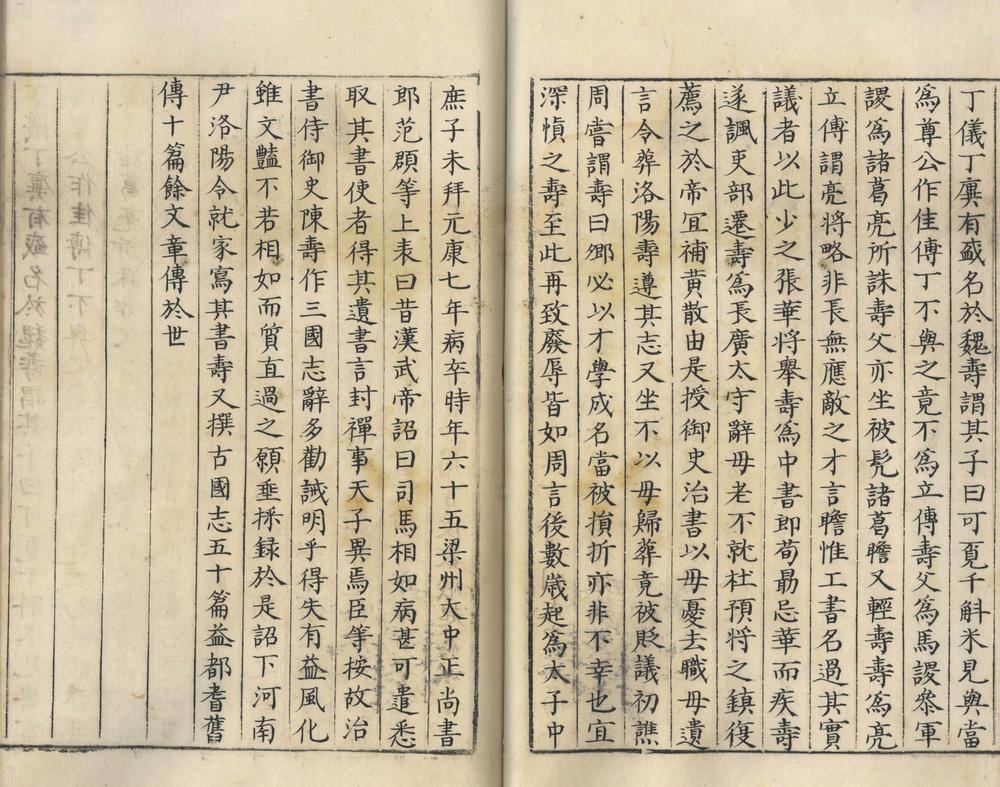 丁儀丁廙有盛名於魏壽謂其子曰可覓千斛米見與當
為尊公作佳傳丁不與之竟不為立傳壽父為馬謖叅軍
謖為諸葛亮所誅壽父亦坐被髠諸葛瞻又輕壽壽為亮
立傳謂亮將略非長無應敵之才言瞻惟工書名過其實
議者以此少之張華將舉壽為中書郎荀勗忌華而疾壽
遂諷吏部遷壽為長廣太守辭母老不就杜預將之鎮復
薦之於帝宜補黃散由是授御史治書以母憂去職母遺
言令葬洛陽壽遵其志又坐不以母歸葬竟被貶議初譙
周嘗謂壽曰鄉必以才學成名當被損折亦非不幸也宜
深慎之壽至此再致廢辱皆如周言後數歲起為太子中
庶子未拜元康七年病卒時年六十五梁州大中正尚書
郎范頵等上表曰昔漢武帝詔曰司馬相如病甚可遣悉
取其書使者得其遺書言封禪事天子異焉臣等按故治
書侍御史陳壽作三國志辭多勸誡明乎得失有益風化
雖文豔不若相如而質直過之願垂採録於是詔下河南
尹洛陽令就家寫其書壽又撰古國志五十篇益都耆舊
傳十篇餘文章傳於世